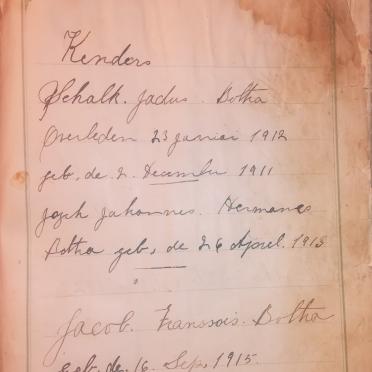 Kenders
Schalk. Jadus. Botha
Overleden 23 Januari 1912
geb, de 2. December 1911
Joseph Johannes. Hermanes
Botha geb, de 26 April. 1913
Jacob. Franssois. Botha
geb. de. 16. Sep. 1915.